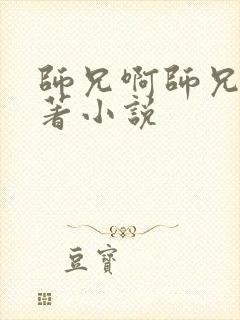 師兄啊師兄
著小説
豆寶